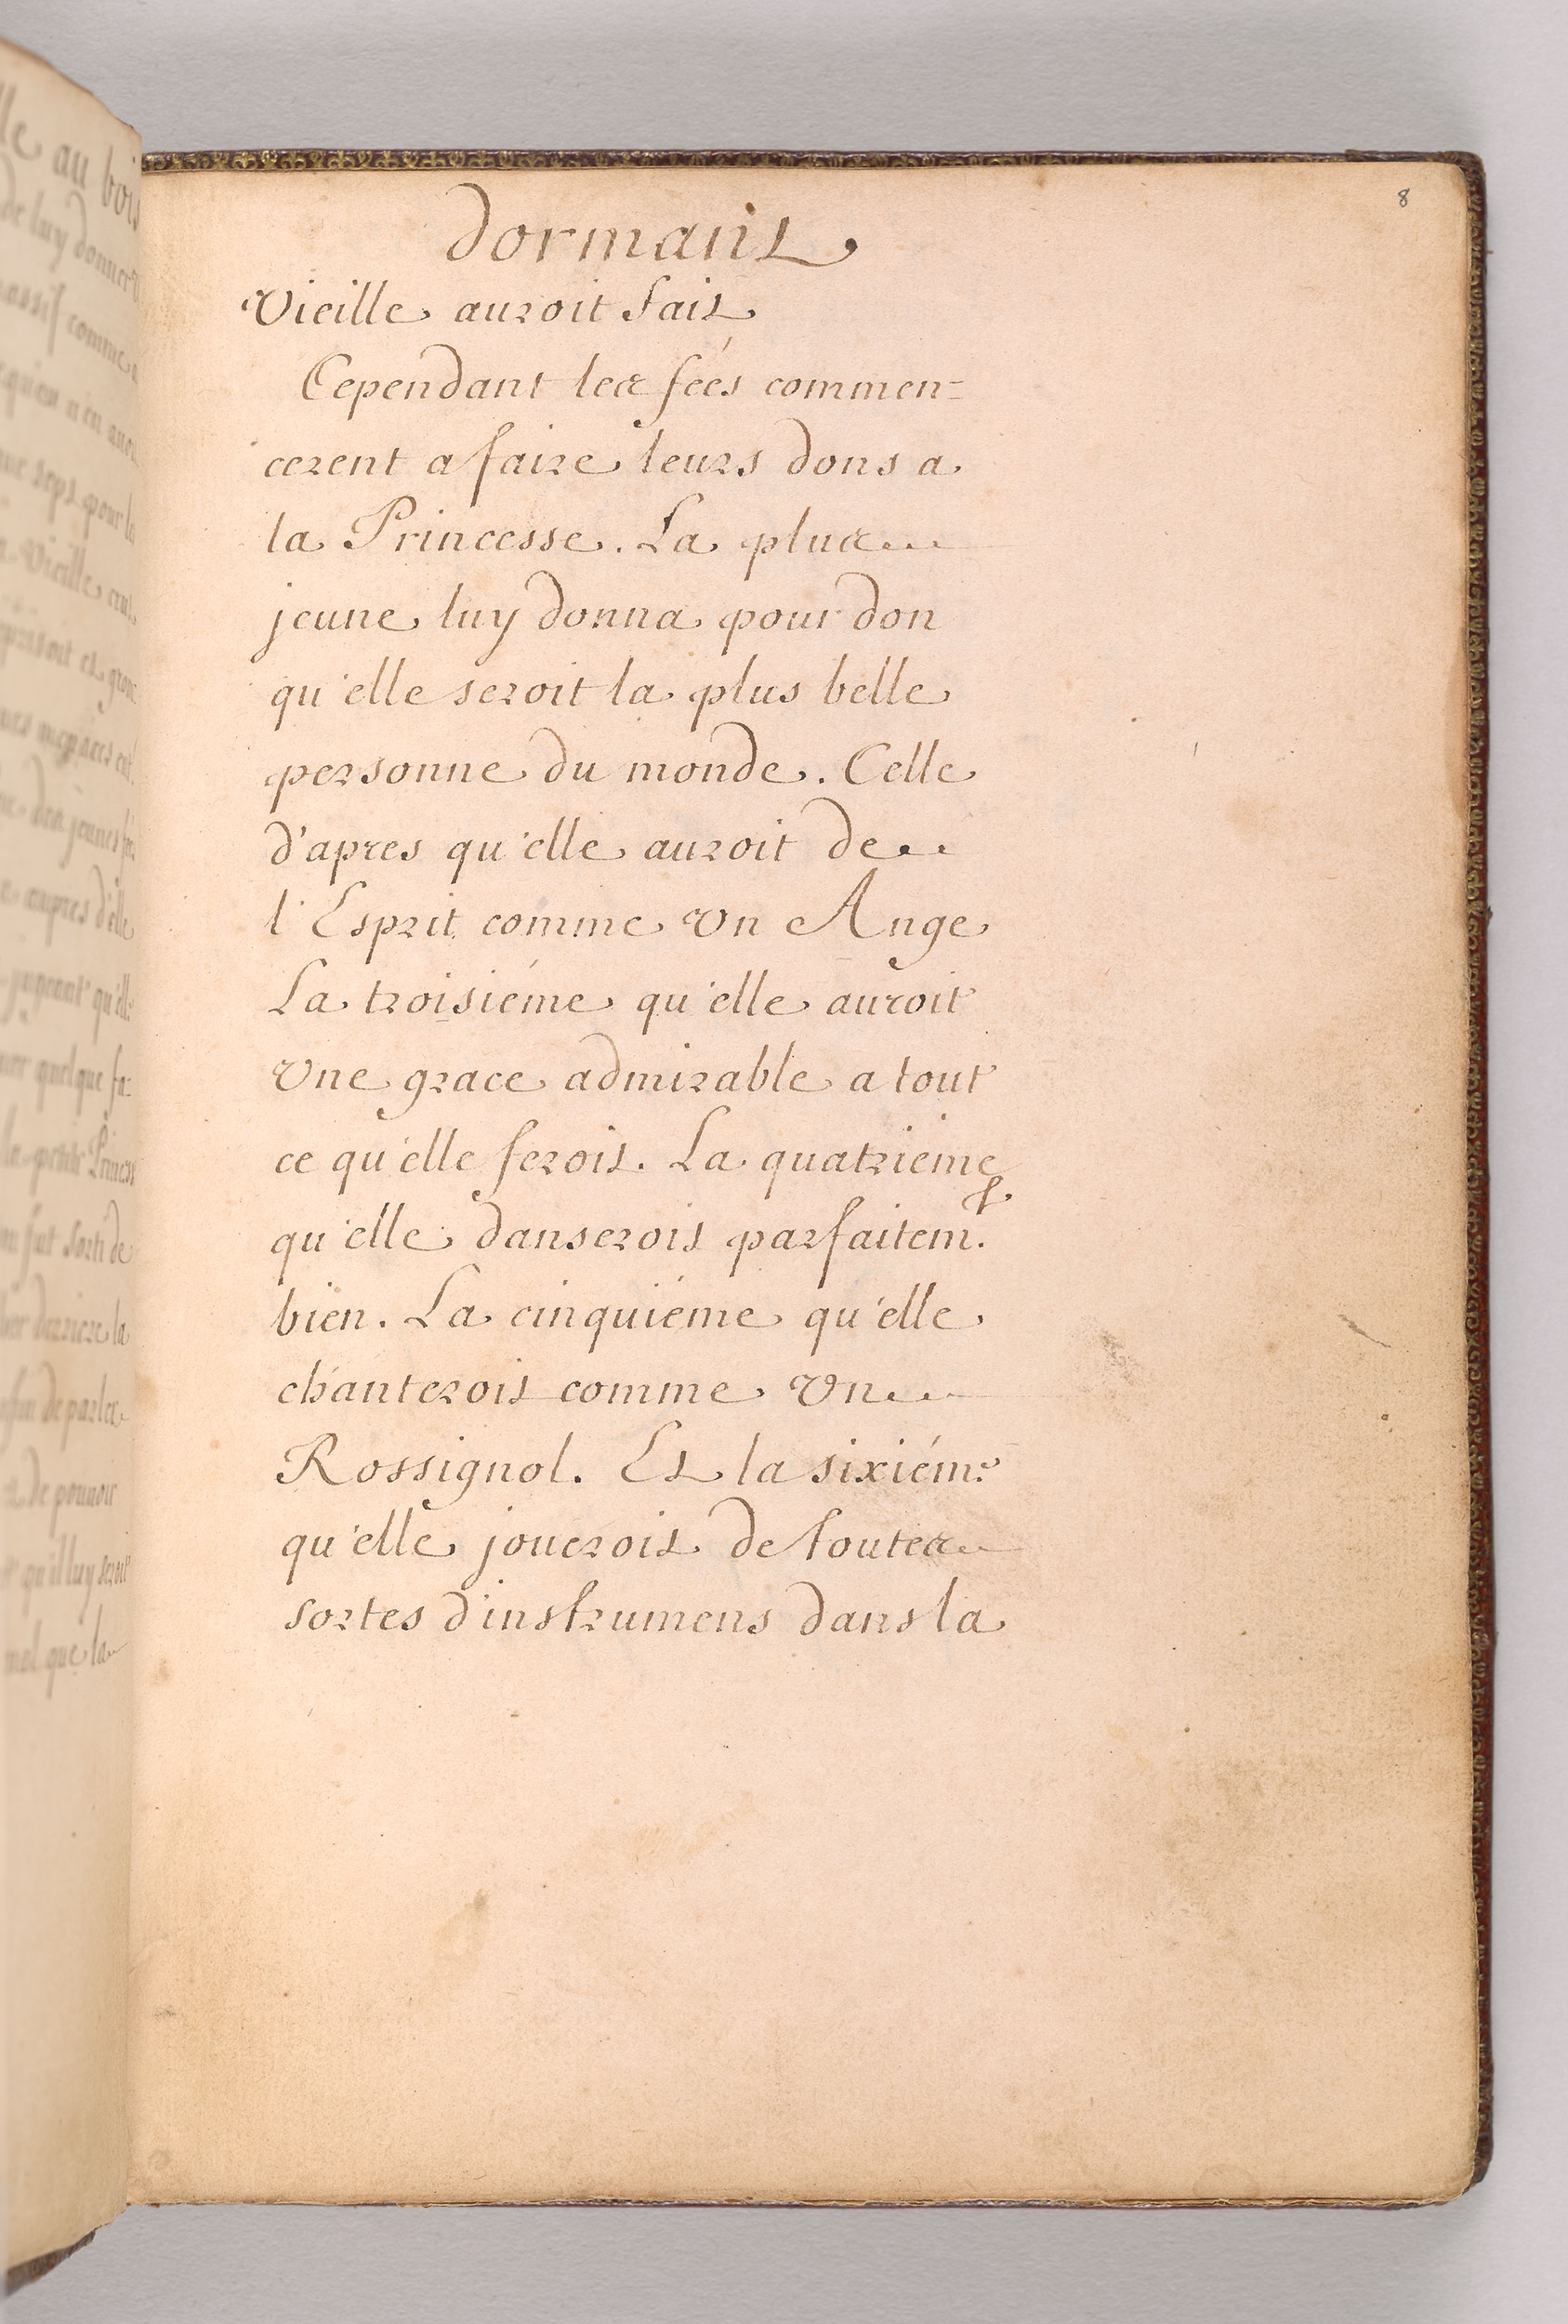 lle au bois
de luy donner
massif comme
qu'on n'en auoit
que sept pour le
Vieille crut
et
menaces ent
des jeunes fées
aupres d'elle
jugeant qu'elle
quelque fa-
la petite Princesse
fut sorti de
derriere la
de parler
de pouuoir
qu'il luy seroit
mal que la
8
dormant
Vieille auroit fait
Cependant les feés commen=
cerent a faire leurs dons a
la Princesse. La plus
jeune luy donna pour don
qu'elle seroit la plus belle
personne du monde. Celle
d'apres qu'elle auroit de
l'Esprit comme vn Ange
La troisiéme qu'elle auroit
vne grace admirable a tout
ce qu'elle feroit. La quatrieme
qu'elle danseroit parfaitem.t
bien. La cinquiéme qu'elle
chanteroit comme vn
Rossignol. Et la sixiém.e
qu'elle joueroit de toutes
sortes d'instrumens dans la